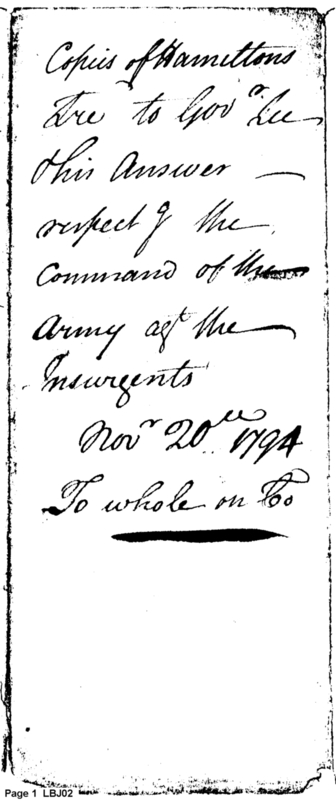 Copies of Hamiltons
Tre to Govr Lee
& his Answer —
respectg the
Command of the
Army agt the
Insurgents
Novr 20th 1794
To whole on Co
Page 1 LBJ02